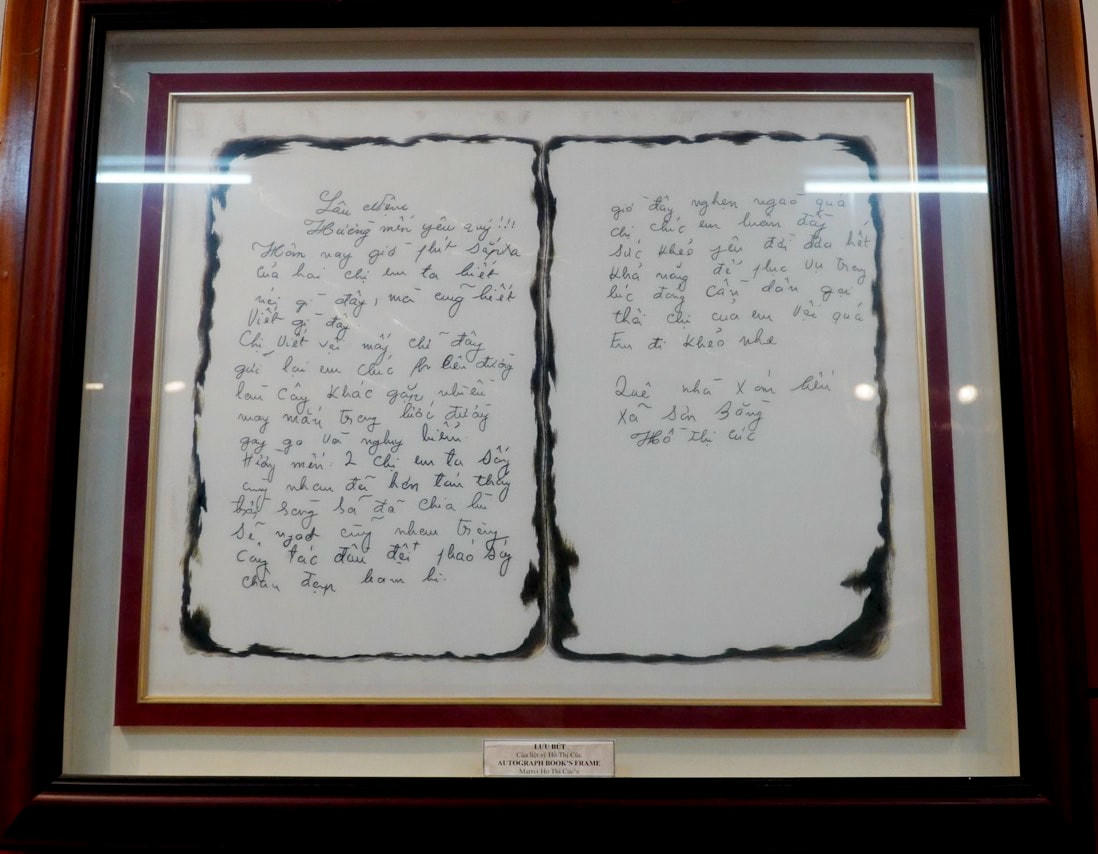 Lưu niệm
Hường mến yêu quý!!!
Hôm nay giờ phút sắp xa
của hai chị em ta biết
nói gì đây, mà cũng biết
Viết gì đây
Chị viết vài mấy chữ đây
gửi lại em chúc lên đường
làm cây khác gặp nhiều
may mắn trong bước đường
gay go và nguy hiểm
Hường mến: 2 chị em ta sống
cùng nhau đã hơn tám tháng
sàng sẽ đã chia bùi
sẽ ngọt cũng nhau trên
công tác đầu đội pháo
chân đạp bam bi.
giờ đây nghẹn ngào quá
chị chúc em luôn đầy
sức khỏe yêu đời đưa hết
khả năng để phục vụ trong
lúc đang cần dân gọi
thôi chị của em vội quá
Em đi khỏe nhe
Quê nhà Xóm bến
Xã Sơn Bằng
Hồ Thị Cúc
LƯU BÚT
Của liệt sỹ Hồ Thị Cúc
AUTOGRAPH BOOK'S FRAME
Martyr Ho Thi Cuc's